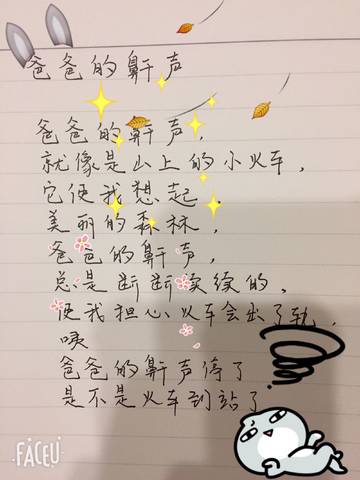 爸爸的鼾声
爸爸的鼾声,
就像是山上的小火车,
它使我想起
美丽的森林,
爸爸的鼾声,
总是断断续续的,
使我担心火车会出了轨,
咦
爸爸的鼾声停了
是不是火车到站了
FACEU